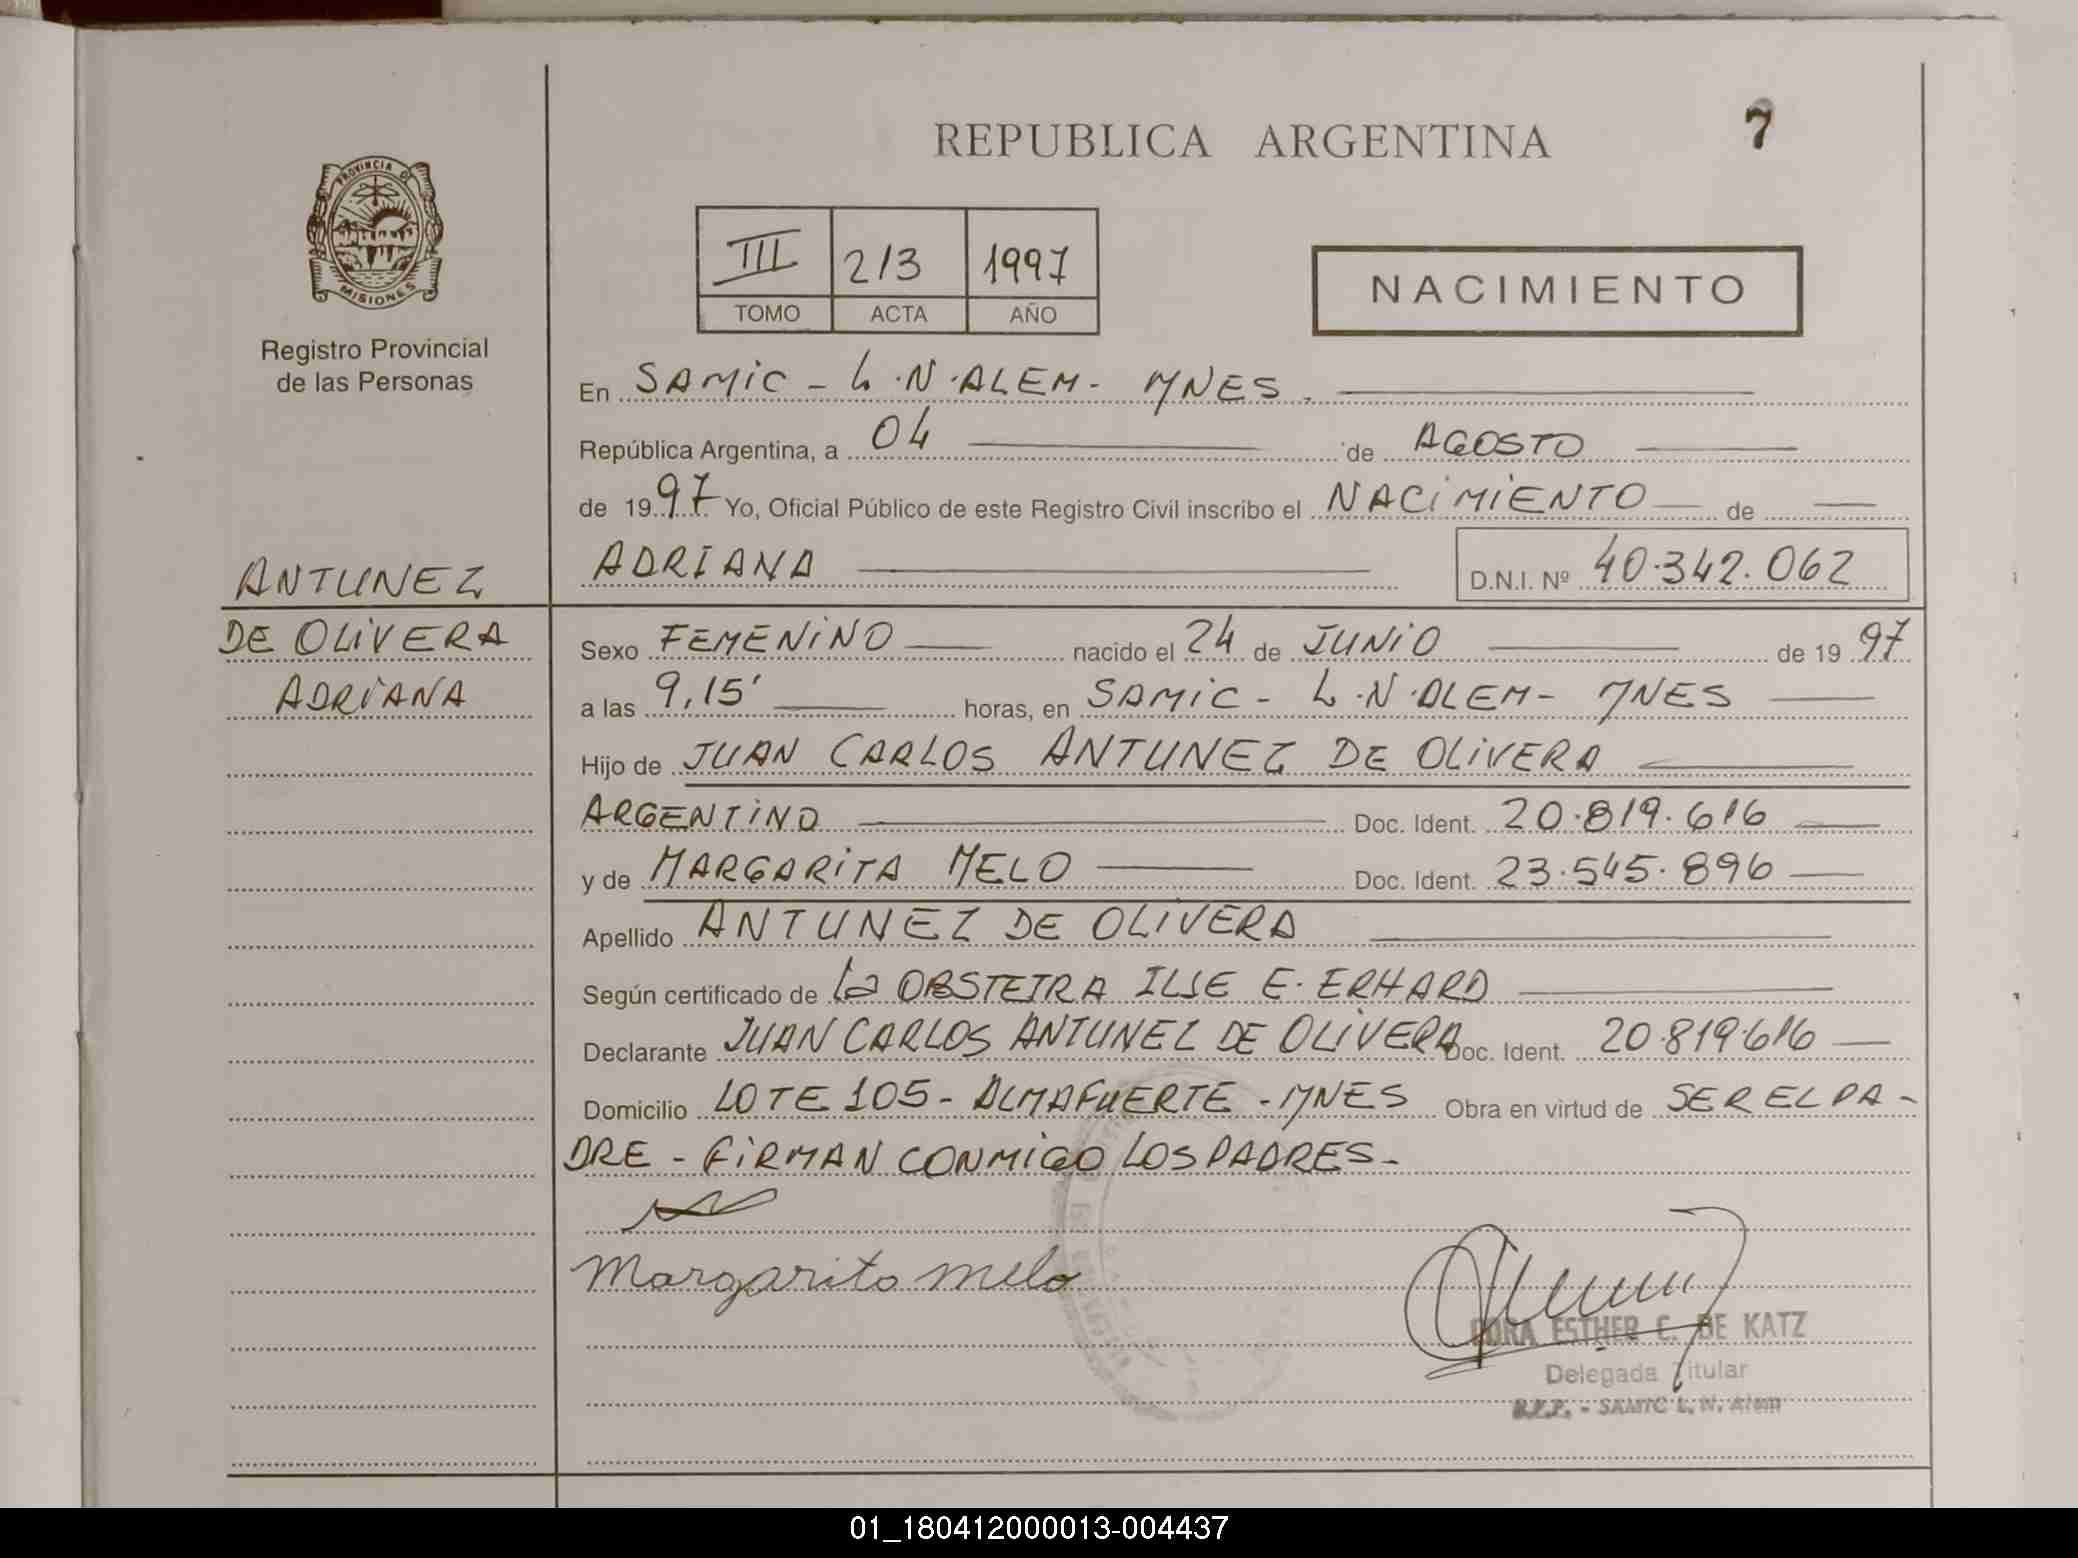 REPUBLICA ARGENTINA
7
PROVINCIA DE
MISIONES
Registro Provincial
de las Personas
III 213 1997
TOMO ACTA AÑO
NACIMIENTO
En SAMIC - L.N.ALEM- MNES.
República Argentina, a 04 de AGOSTO
de 1997 Yo, Oficial Público de este Registro Civil inscribo el NACIMIENTO de
ADRIANA D.N.I. Nº 40.342.062
ANTUNEZ
DE OLIVERA
ADRIANA
Sexo FEMENINO nacido el 24 de JUNIO de 1997
a las 9,15' horas, en SAMIC - L.N.ALEM- MNES
Hijo de JUAN CARLOS ANTUNEZ DE OLIVERA
ARGENTINO Doc. Ident. 20.819.616
y de MARGARITA MELO Doc. Ident. 23.545.896
Apellido ANTUNEZ DE OLIVERA
Según certificado de La OBSTETRA ILSE E. ERHARD
Declarante JUAN CARLOS ANTUNEZ DE OLIVERA Doc. Ident. 20.819.616
Domicilio LOTE 105 - ALMAFUERTE - MNES Obra en virtud de SER EL PA-
DRE - FIRMAN CONMIGO LOS PADRES-
Margarita melo
DORA ESTHER C. DE KATZ
Delegada Titular
R.P.P. - SAMIC L. N. Alem
01_180412000013-004437